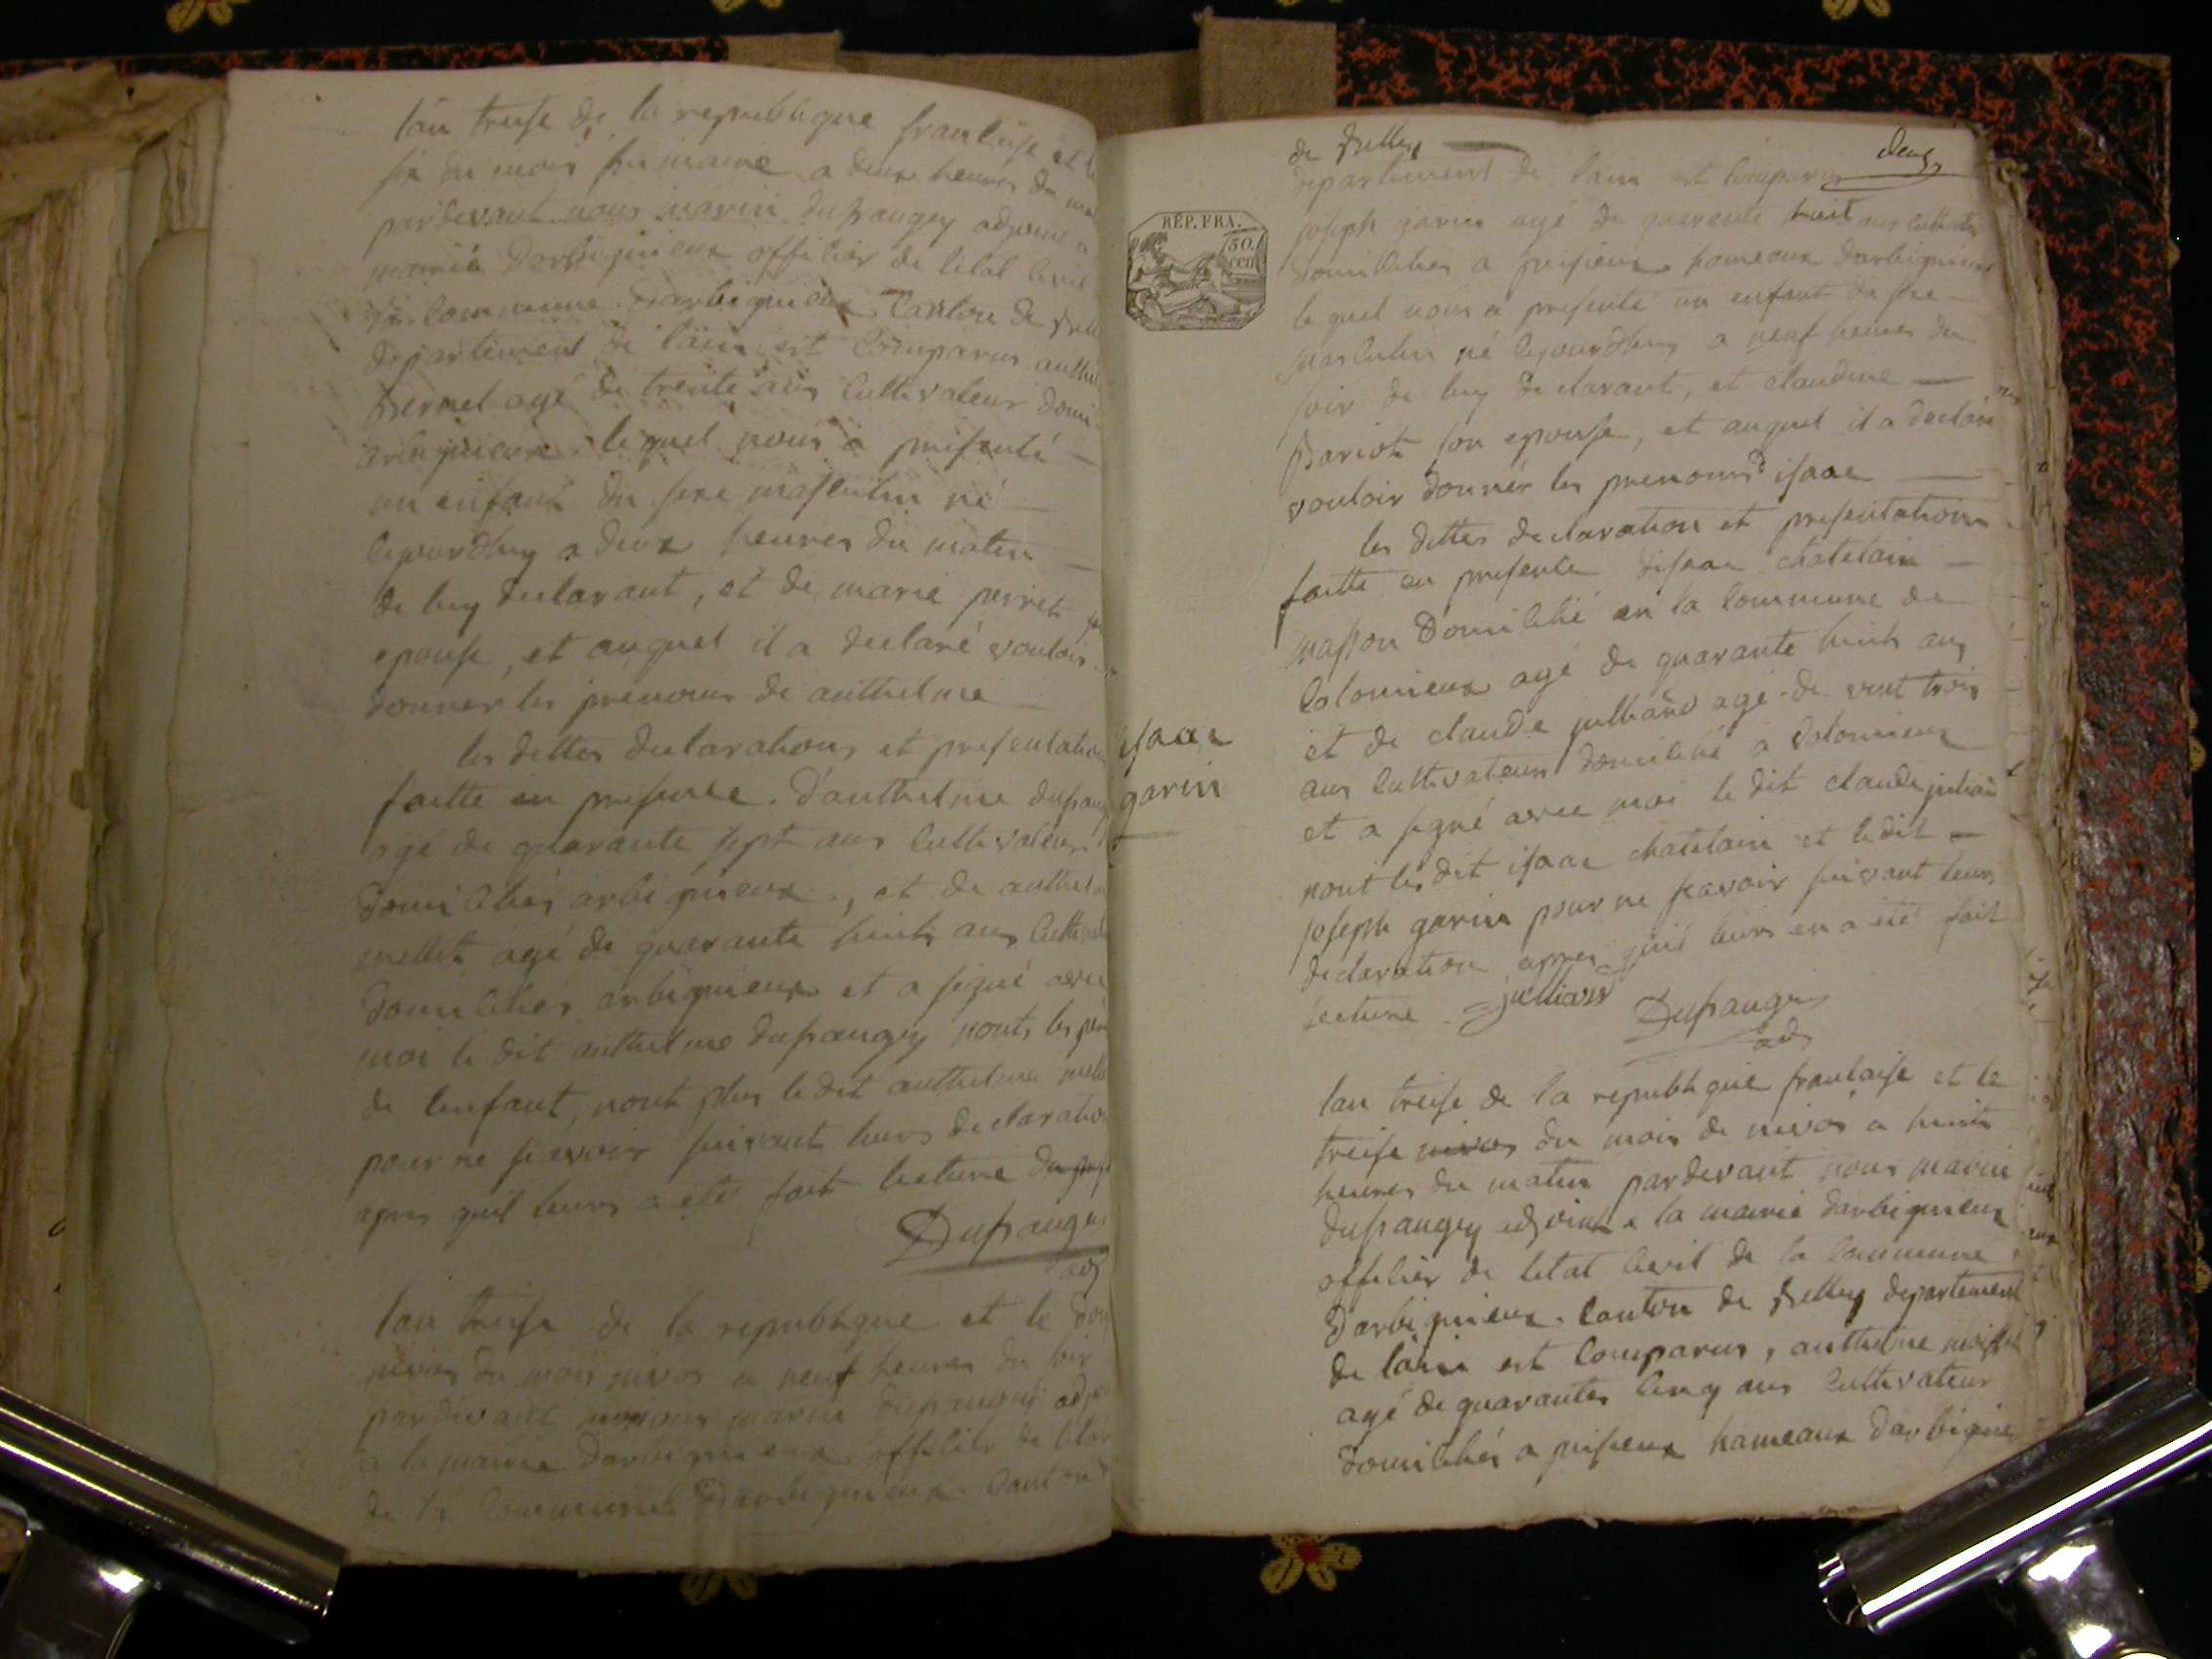 lan treise de la republique francaise et le
six du mois frimaire a deux heures du
pardevant nous marin dufraugey adjoint a
mairie Darbignieux officier de letat civil
la commune Darbignieux Canton de
departement de lain est comparus anthel
pernet agé de trente ans cultivateur domi
arbignieux lequel nous a presenté
un enfant du sexe masculin né
cejourdhuy a deux heures du matin
de luy declarant, et de marie perret
epouse, et auquel il a declaré vouloir
donner les prenoms de anthelme
les dittes declarations et presentation
faitte en presence d'anthelme dufraug
agé de quarante sept ans cultivateur
domiciliés arbignieux, et de anthel
mellet agé de quarante huit ans cultivat
domiciliés arbignieux et a signé avec
moi le dit anthelme dufraugey nonts les
de lenfant, nont plus ledit anthelme mell
pour ne scavoir suivant leurs declaration
apres quil leurs a eté fait lecture
Dufraugey
adj
lan treise de la republique et le
nivos du mois nivos a neuf heures du soir
pardevant nous marin dufraugey adj
a la mairie Darbignieux officier de létat
de la commune Darbignieux Canton
deux
de Belley
departement de lain est comparus
RÉP. FRA.
50.
cen
joseph garin agé de quarente huit ans cultivateur
domicilies a peisieux hameaux darbignieux
le quel nous a presenté un enfant du sexe
masculin né cejourdhuy a neuf heures du
soir de luy declarant, et claudine
Pariot son epouse, et auquel il a declaré
vouloir donnér les prenoms d isaac
les dittes declaration et presentations
faitte en presence disaac chatelain
masson domicilié en la commune de
Colomieux agé de quarante huit ans
et de claude julliand agé de vint trois
isaac
garin
ans cultivateur domicilié a Colomieux
et a signé avec moi le dit claude julian
nont les dit isaac chatelain et ledit
joseph garin pour ne scavoir suivant leurs
declaration apres quil leurs en a eté fait
lecture julliand Dufraugey
adj
lan treise de la republique francaise et le
treise nivos du mois de nivos a huit
heures du matin pardevant nous marin
dufraugey adjoint a la mairie darbignieux
officier de letat civil de la commune
Darbignieux canton de Belley departement
de lain est comparus, anthelme
agé de quarantes cinq ans cultivateur
domiciliés a peisieux hameaux darbignie